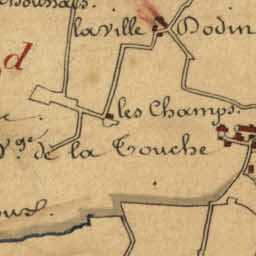 la ville Dodin
d
les Champs.
V.ge de la Touche